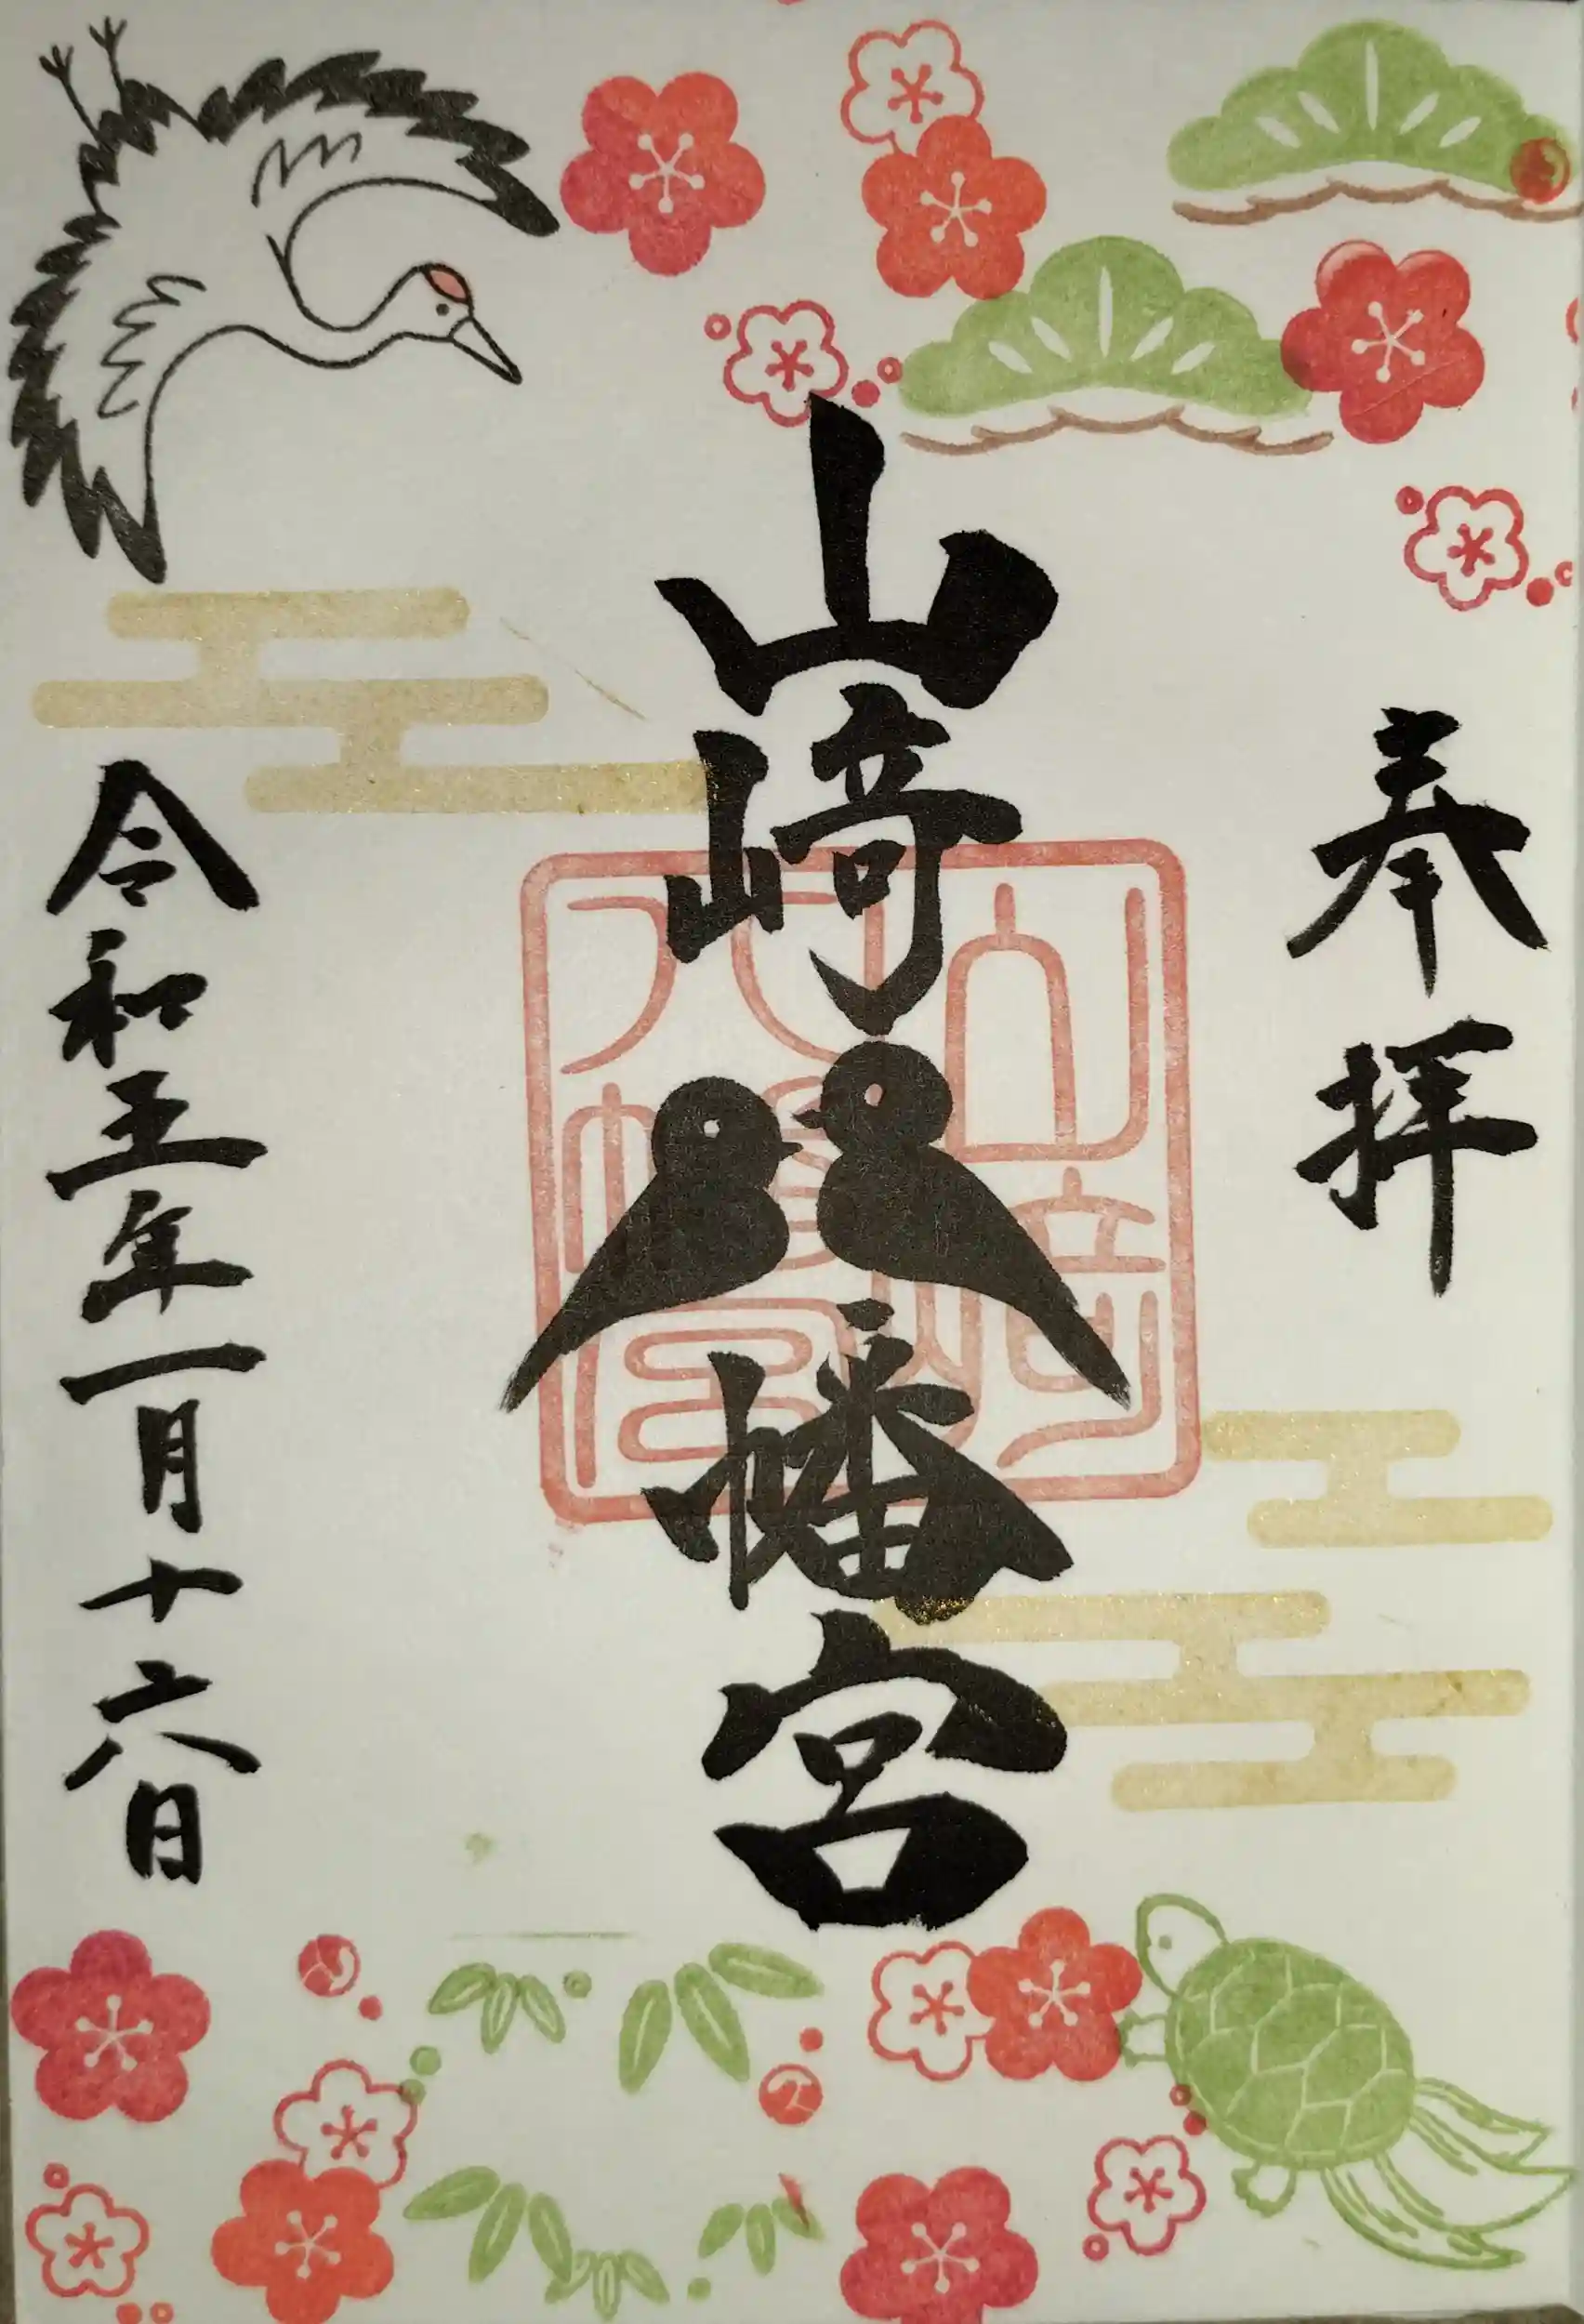 奉拝
山崎八幡宮
令和五年一月十六日
山崎八幡宮